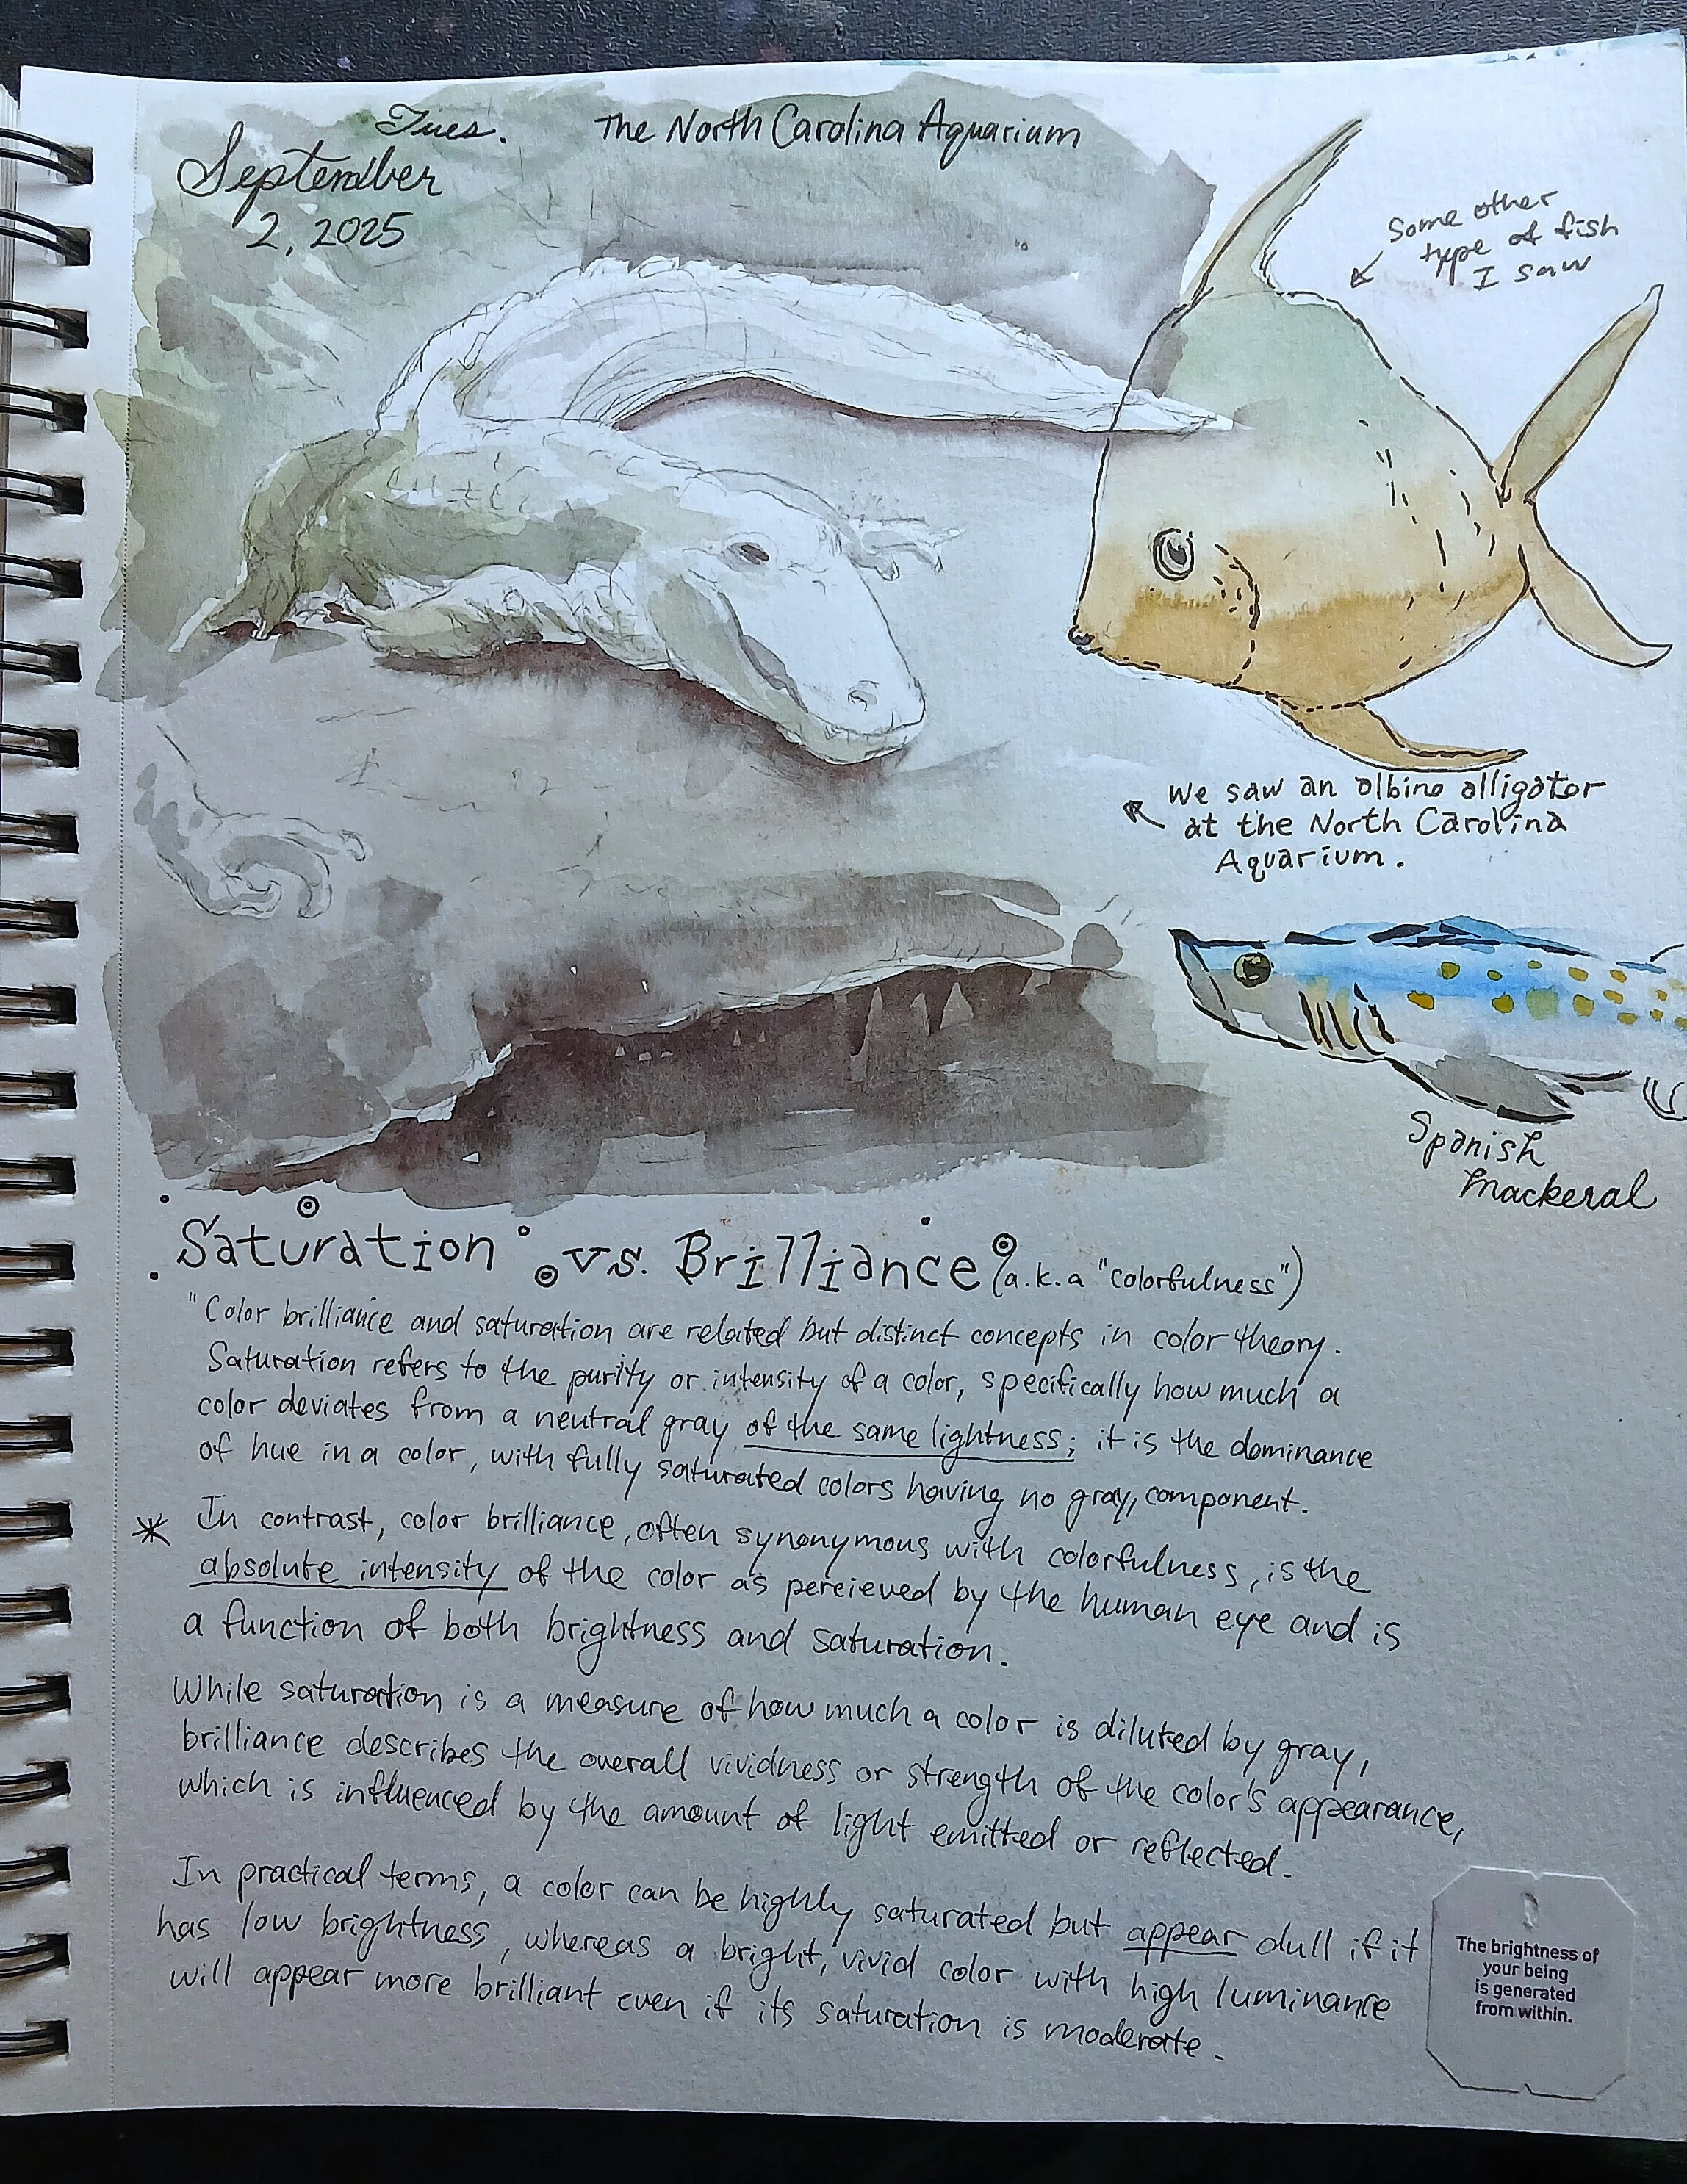 Tues.
September
2, 2025
The North Carolina Aquarium
Some other
type of fish
I saw
We saw an albino alligator
at the North Carolina
Aquarium.
Spanish
Mackeral
Saturation vs. Brilliance (a.k.a "colorfulness")
"Color brilliance and saturation are related but distinct concepts in color theory.
Saturation refers to the purity or intensity of a color, specifically how much a
color deviates from a neutral gray of the same lightness; it is the dominance
of hue in a color, with fully saturated colors having no gray, component.
* In contrast, color brilliance, often synonymous with colorfulness, is the
absolute intensity of the color as pereieved by the human eye and is
a function of both brightness and saturation.
While saturation is a measure of how much a color is diluted by gray,
brilliance describes the overall vividness or strength of the color's appearance,
which is influenced by the amount of light emitted or reflected.
In practical terms, a color can be highly saturated but appear dull if it
has low brightness, whereas a bright, vivid color with high luminance
will appear more brilliant even if its saturation is moderate.
The brightness of
your being
is generated
from within.